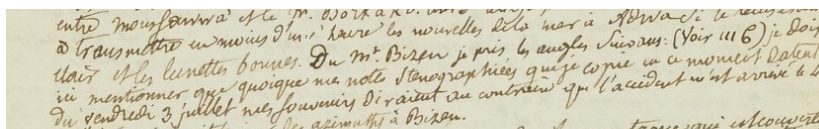 entre Moussawwa et le M.
à transmettre en moins d'une heure les nouvelles de la mer à Adwa si le
clair et les lunettes bonnes. Du Mt. Bizen je pris les angles suivans: (Voir III 6) je dois
ici mentionner que quoique mes notes stenographiées que je copie en ce moment datent
du vendredi 3 juillet mes souvenirs diraient au contraire que l'accident n'est arrivé le 4
les azimuths à Bizen.
qui est couverte